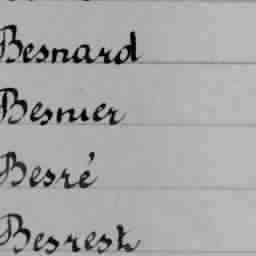 Besnard
Besnier
Besré
Besrest